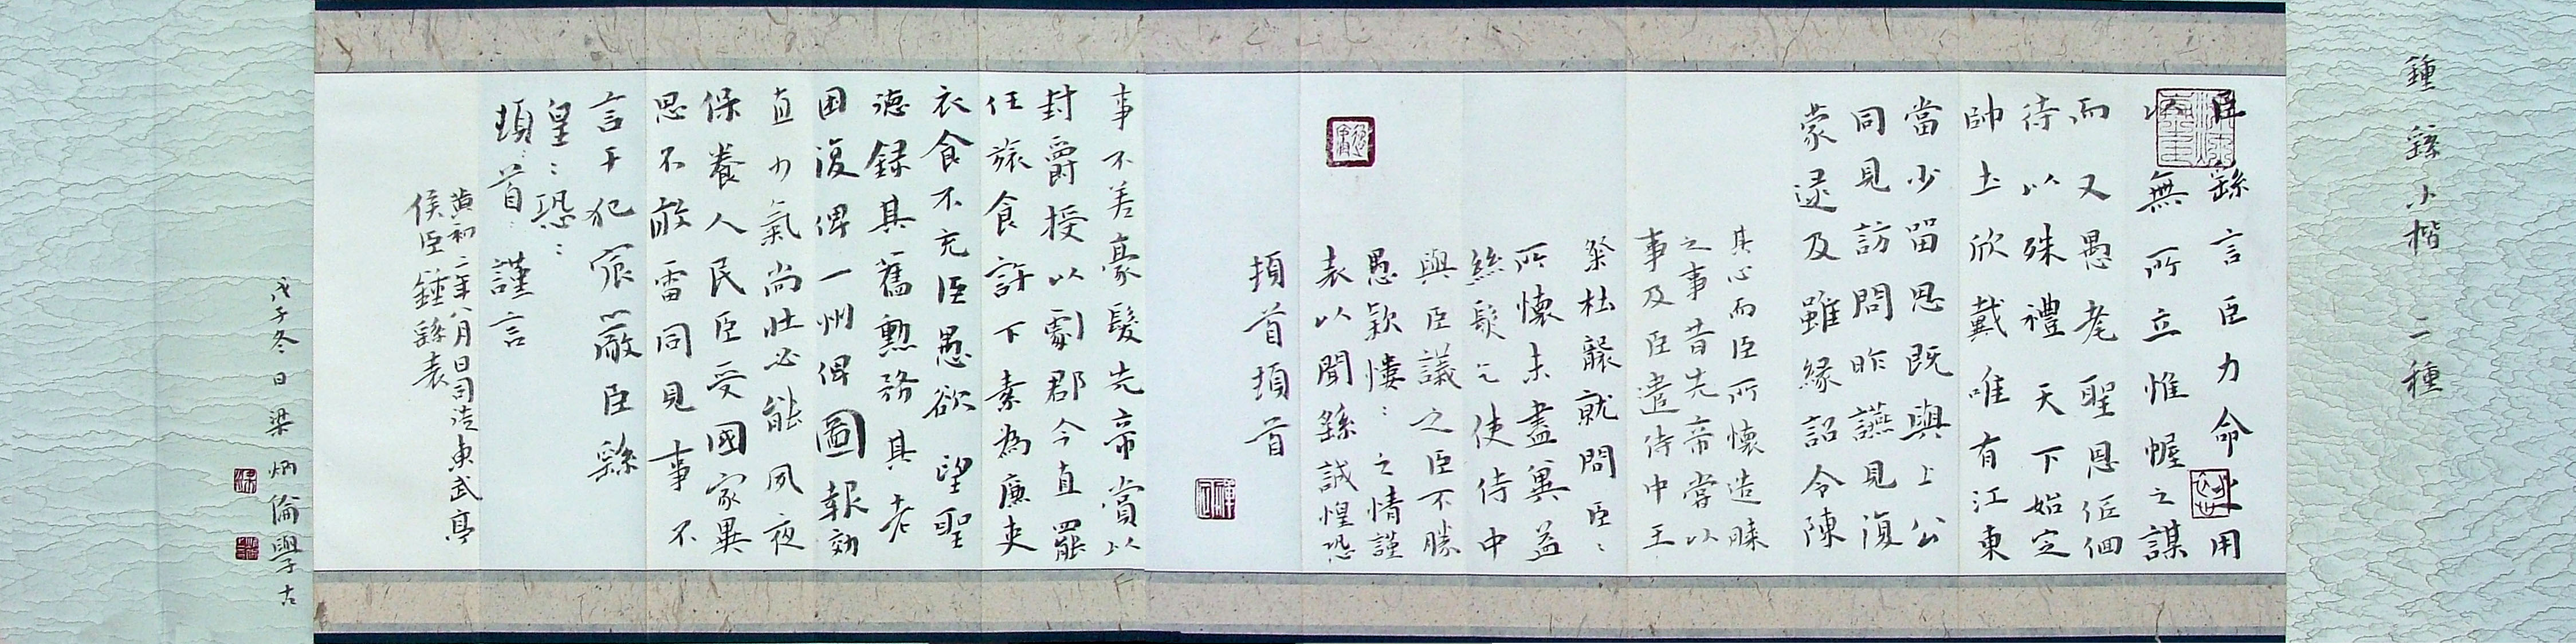 鍾繇小楷二種
臣繇言臣力命之用
以無所立惟幄之謀
而又愚耄聖恩低佪
待以殊禮天下始定
帥土欣戴唯有江東
當少留思既與上公
同見訪問昨讌見復
蒙逮及雖緣詔令陳
其心而臣所懷造膝
之事昔先帝嘗以
事及臣遣侍中王
粲杜襲就問臣〻
所懷未盡冀益
絲髮乞使侍中
與臣議之臣不勝
愚款慺〻之情謹
表以聞繇誠惶恐
頓首頓首
事不差豪髮先帝賞以
封爵授以劇郡今直罷
任旅食許下素為廉吏
衣食不充臣愚欲望聖
德錄其舊勳務其老
困復俾一州俾圖報効
直力氣尚壯必能夙夜
保養人民臣受國家異
恩不敢雷同見事不
言干犯宸嚴臣繇
皇〻恐〻
頓〻首〻謹言
黃初二年八月日司徒東武亭
侯臣鍾繇表
戊子冬日梁炳倫學古